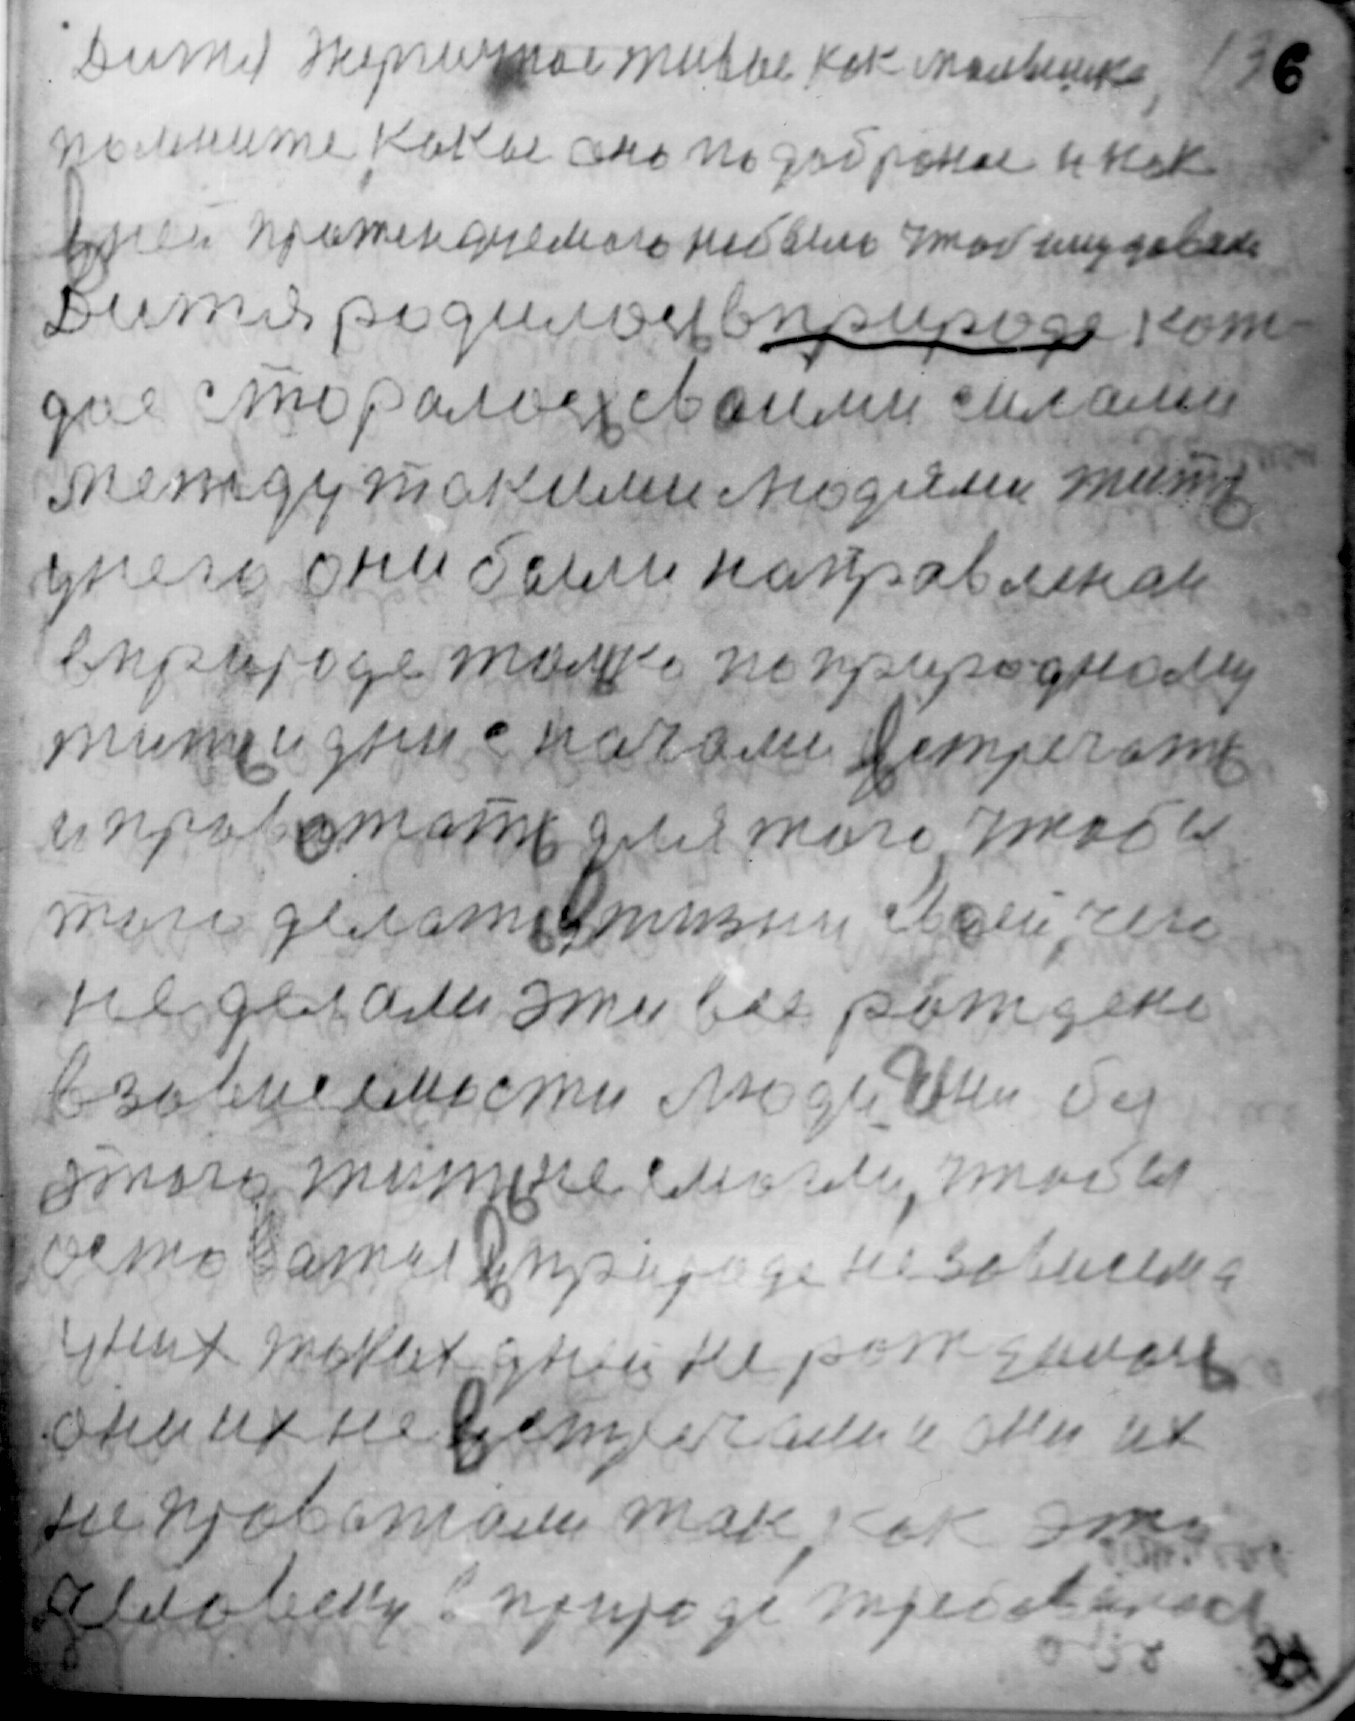 136
Дитя энергичное живое как мальчишка,
помните, какое оно подобраное и как
в ней прожеиднемого небыло чтоб ему давали
Дитя родилось в природе кож-
дое сторалось своими силами
между такими людями жить
у него они были направленаи
в природе только по природному
жить и дни с начами встречать
и провожать для того, чтобы
того делать в жизни своей, чего
не делали эти все рождено
в зависемости люди. Они без
этого жить не смогли, чтобы
оставатся в природе независема
у них таких дней не рождалось
они их не встречали и они их
не провожали так, как это
человеку в природе требовалось